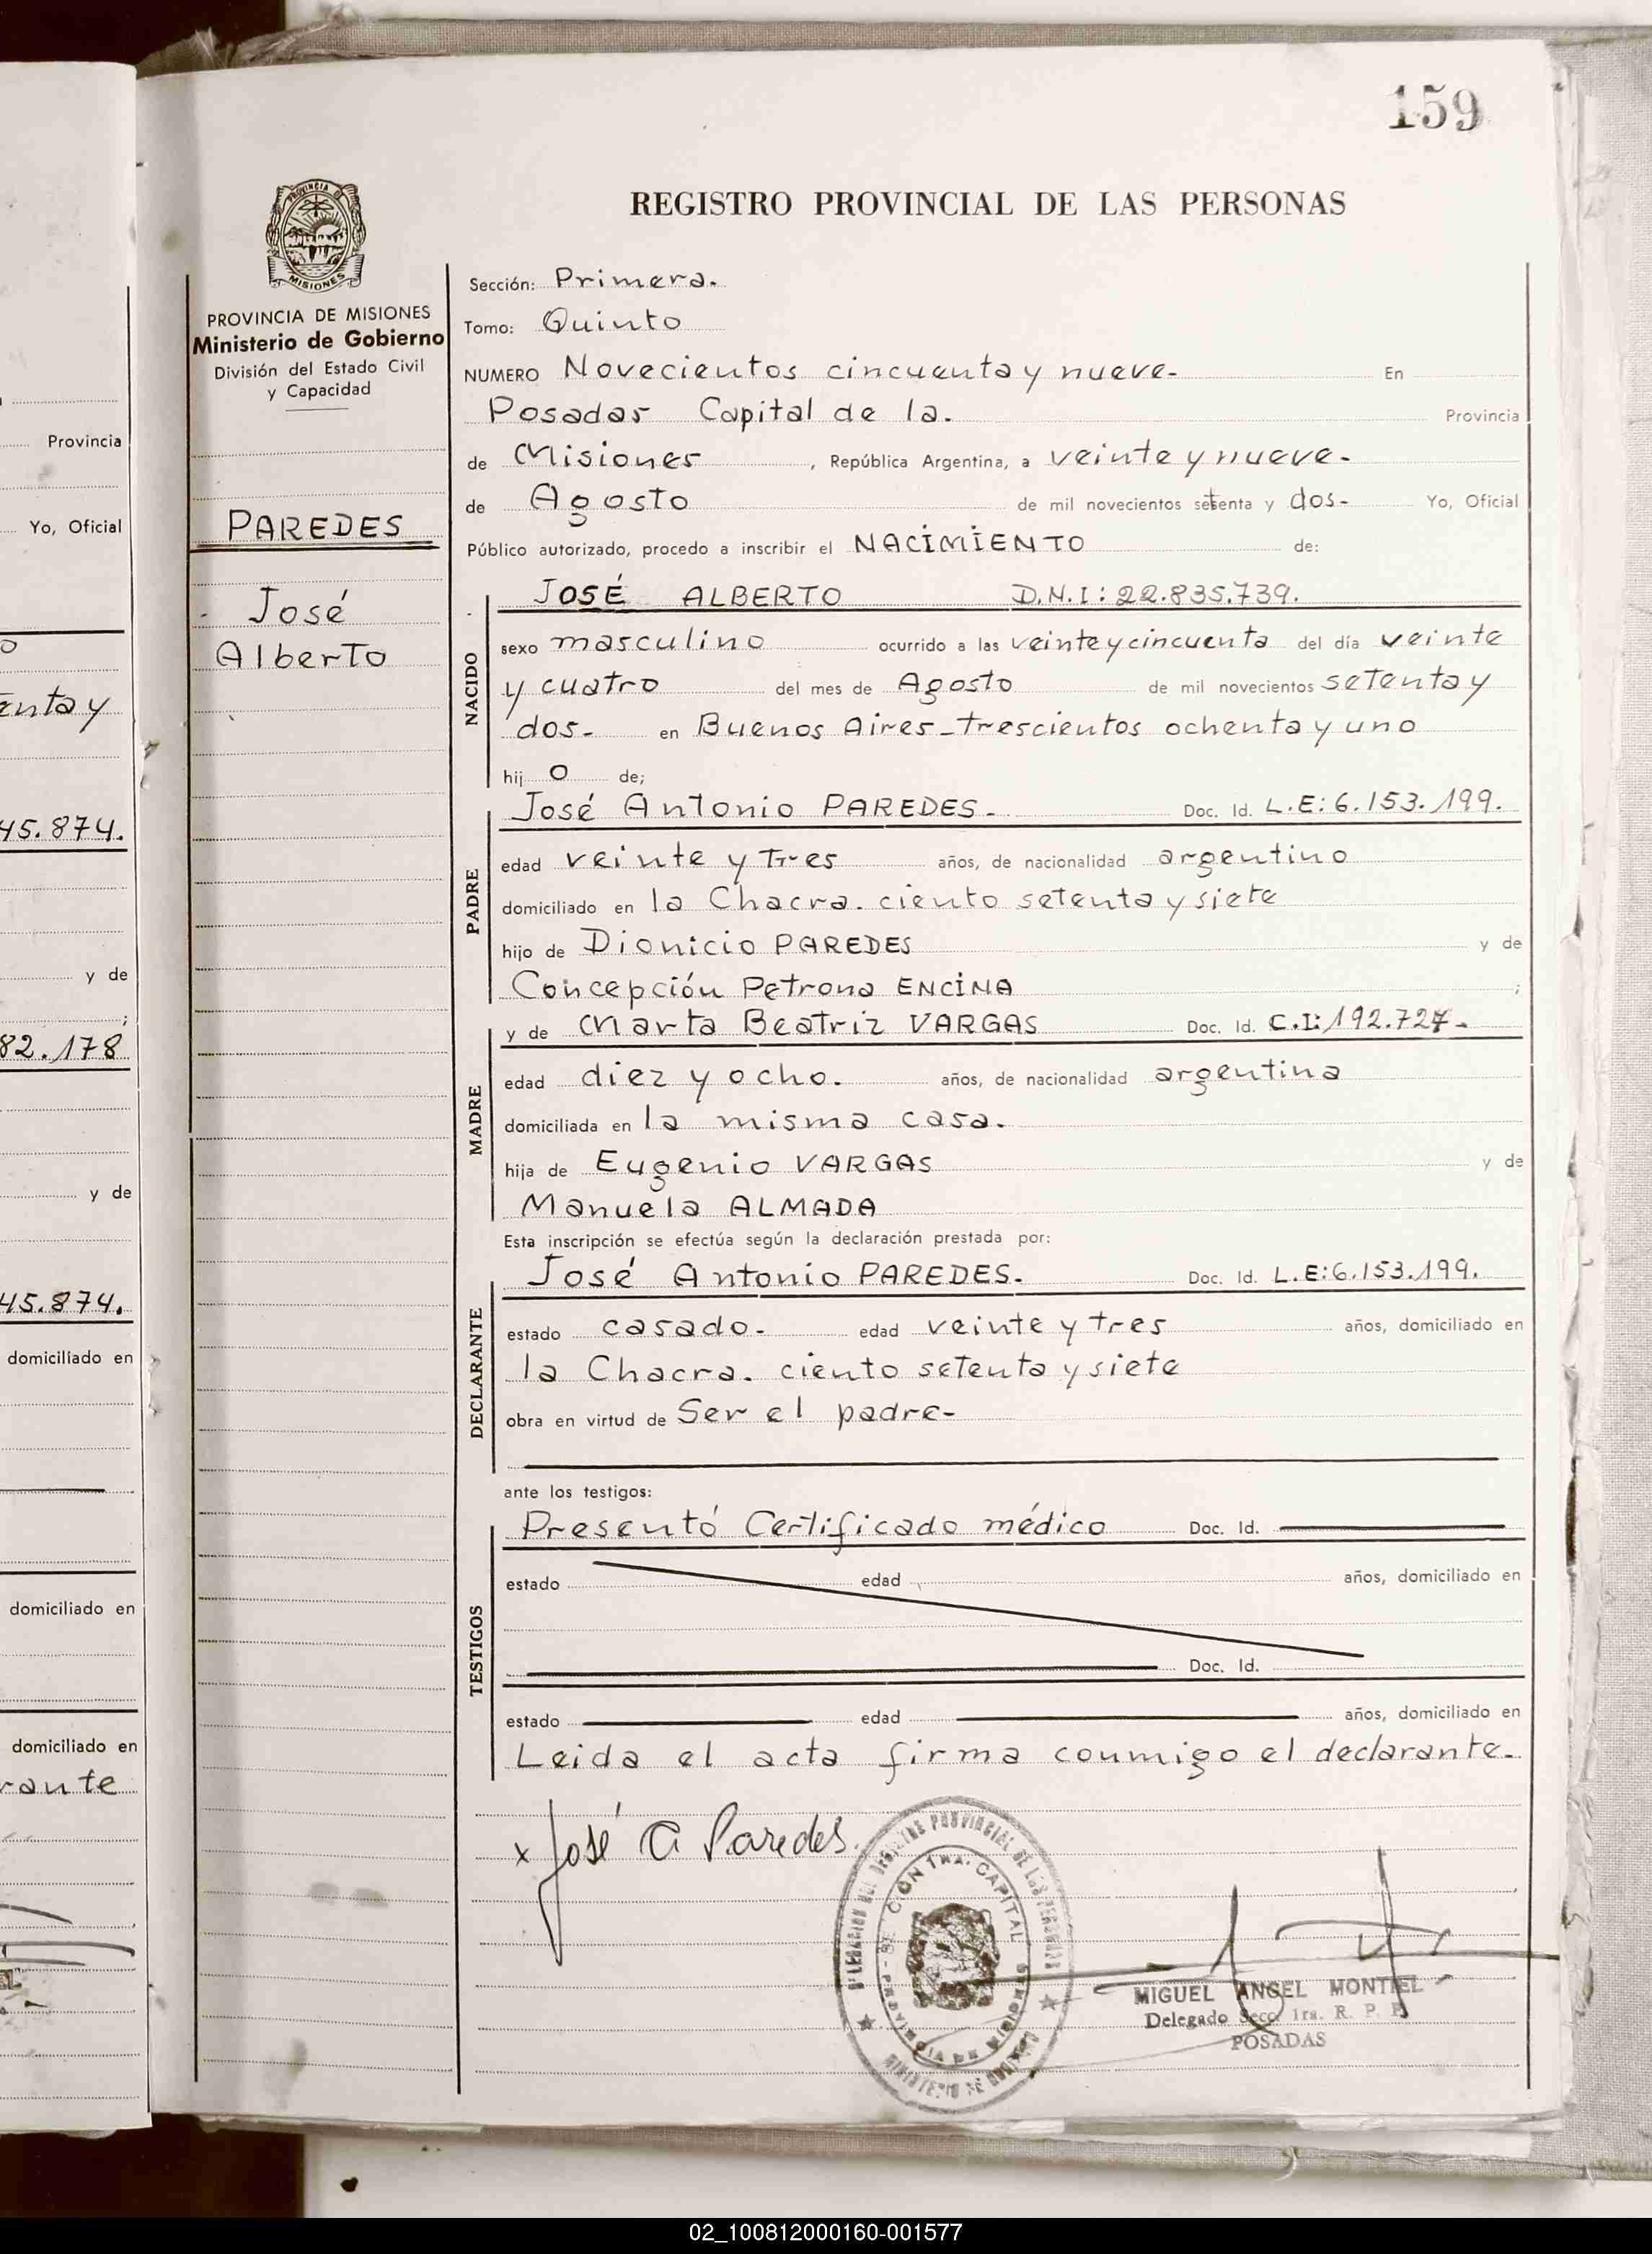 159
PROVINCIA DE
MISIONES
PROVINCIA DE MISIONES
Ministerio de Gobierno
División del Estado Civil
y Capacidad
PAREDES
José
Alberto
REGISTRO PROVINCIAL DE LAS PERSONAS
Sección: Primera.
Tomo: Quinto
NUMERO Novecientos cincuenta y nueve- En
Posadas Capital de la. Provincia
de Misiones, República Argentina, a veinte y nueve-
de Agosto de mil novecientos setenta y dos- Yo, Oficial
Público autorizado, procedo a inscribir el NACIMIENTO de:
NACIDO
JOSÉ ALBERTO D.N.I: 22.835.739.
sexo masculino ocurrido a las veinte y cincuenta del día veinte
y cuatro del mes de Agosto de mil novecientos setenta y
dos- en Buenos Aires-trescientos ochenta y uno
hij o de;
PADRE
José Antonio PAREDES- Doc. Id. L.E: 6.153.199.
edad veinte y tres años, de nacionalidad argentino
domiciliado en la Chacra. ciento setenta y siete
hijo de Dionicio PAREDES y de
Concepción Petrona ENCINA ;
MADRE
y de Marta Beatriz VARGAS Doc. Id. C.I: 192.727-
edad diez y ocho. años, de nacionalidad argentina
domiciliada en la misma casa.
hija de Eugenio VARGAS y de
Manuela ALMADA
Esta inscripción se efectúa según la declaración prestada por:
DECLARANTE
José Antonio PAREDES- Doc. Id. L.E: 6.153.199.
estado casado- edad veinte y tres años, domiciliado en
la Chacra. ciento setenta y siete
obra en virtud de Ser el padre-
ante los testigos:
TESTIGOS
Presentó Certificado médico Doc. Id.
estado edad años, domiciliado en
Doc. Id.
estado edad años, domiciliado en
Leida el acta firma conmigo el declarante-
x José A Paredes.
MIGUEL ANGEL MONTIEL
Delegado Secc. 1ra. R. P. P.
POSADAS
Provincia
Yo, Oficial
enta y
45.874.
y de
;
82.178
y de
45.874.
domiciliado en
domiciliado en
domiciliado en
rante
02_100812000160-001577